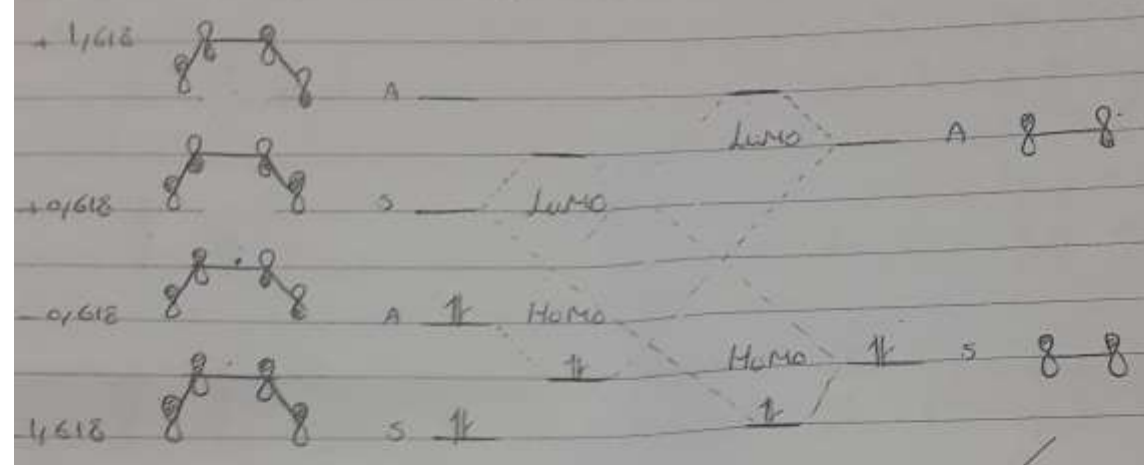 + 1,618
A
LUMO
A
+0,618
S
LUMO
-0,618
A
HOMO
HOMO
S
1,618
S